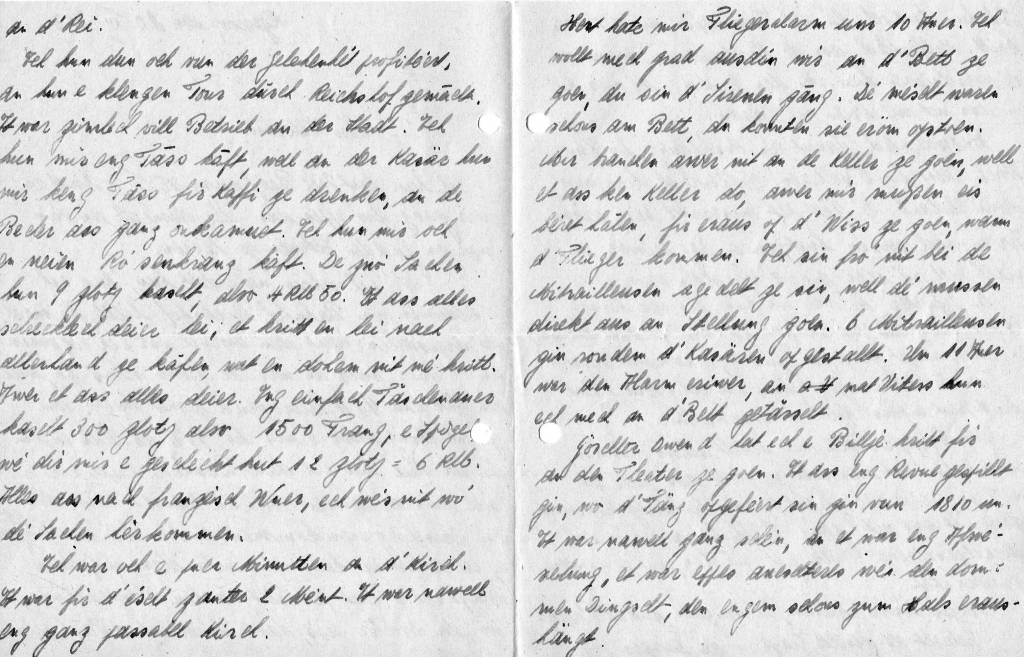 an d'Rei.
Ech hun dun och vun der gelehenhet profitéert,
an hun e klengen Tour duerch Reichshof gemaach.
Et war zimlech vill Betrieb an der Stadt. Ech
hun mir eng Täss kaft, well an der Kasär hun
mir keng Täss fir Kaffi ze drenken, an de
Becher ass ganz onkamout. Ech hun mir och
en neien Rósenkranz kaft. De zwó Sachen
hun 9 zloty kascht, also 4 RM 50. Et ass alles
schrecklech deier hei, et kritt en hei nach
allerhand ze käfen, wat en dohem nit mé kritt.
Iwer et ass alles deier. Eng einfach Täschenauer
kascht 300 zloty also 1500 Frang, e Spigel
wé dir mir e geschéckt hut 12 zloty = 6 RM.
Alles ass nach franzéisch Wuer, ech wés nit wó
dé Sachen hierkommen.
Ech war och e puer Minutten an d'Kirch.
Et war fir d'éischt zanter 2 Méint. Et war nawell
eng ganz passabel Kirch.
Hent hate mir Fliegeralarm um 10 Auer. Ech
wollt mech grad ausdin wir an d'Bett ze
goen, du sin d'Sirenen gäng. Dé méscht waren
schons am Bett, du konnten sie erëm opstoen.
Mir brauchen awer nit an de Keller ze goen, well
et ass ken Keller do, awer mir mussen eis
beret halen, fir eraus op d'Wiss ze goen, wann
d'Flieger kommen. Ech sin fro nit bei de
Mitrailleusen agedelt ze sin, well dé mussen
direkt aus an Stellung goen. 6 Mitrailleusen
gin ronderm d'Kasären opgestallt. Um 11 Auer
war den Alarm eriwer, an mat Vitess hun
ech mech an d'Bett getässelt.
Göschter Owend hat ech e Billjé kritt fir
an den Theater ze goen. Et ass eng Revue gespillt
gin, wo d'Tänz opgefeert sin gin vun 1810 un.
Et war nawell ganz schén, an et war eng Ofwé-
relung, et war eppes aneschteres wéi den dom-
men Dingscht, den engem schons zum Hals eraus-
hängt.